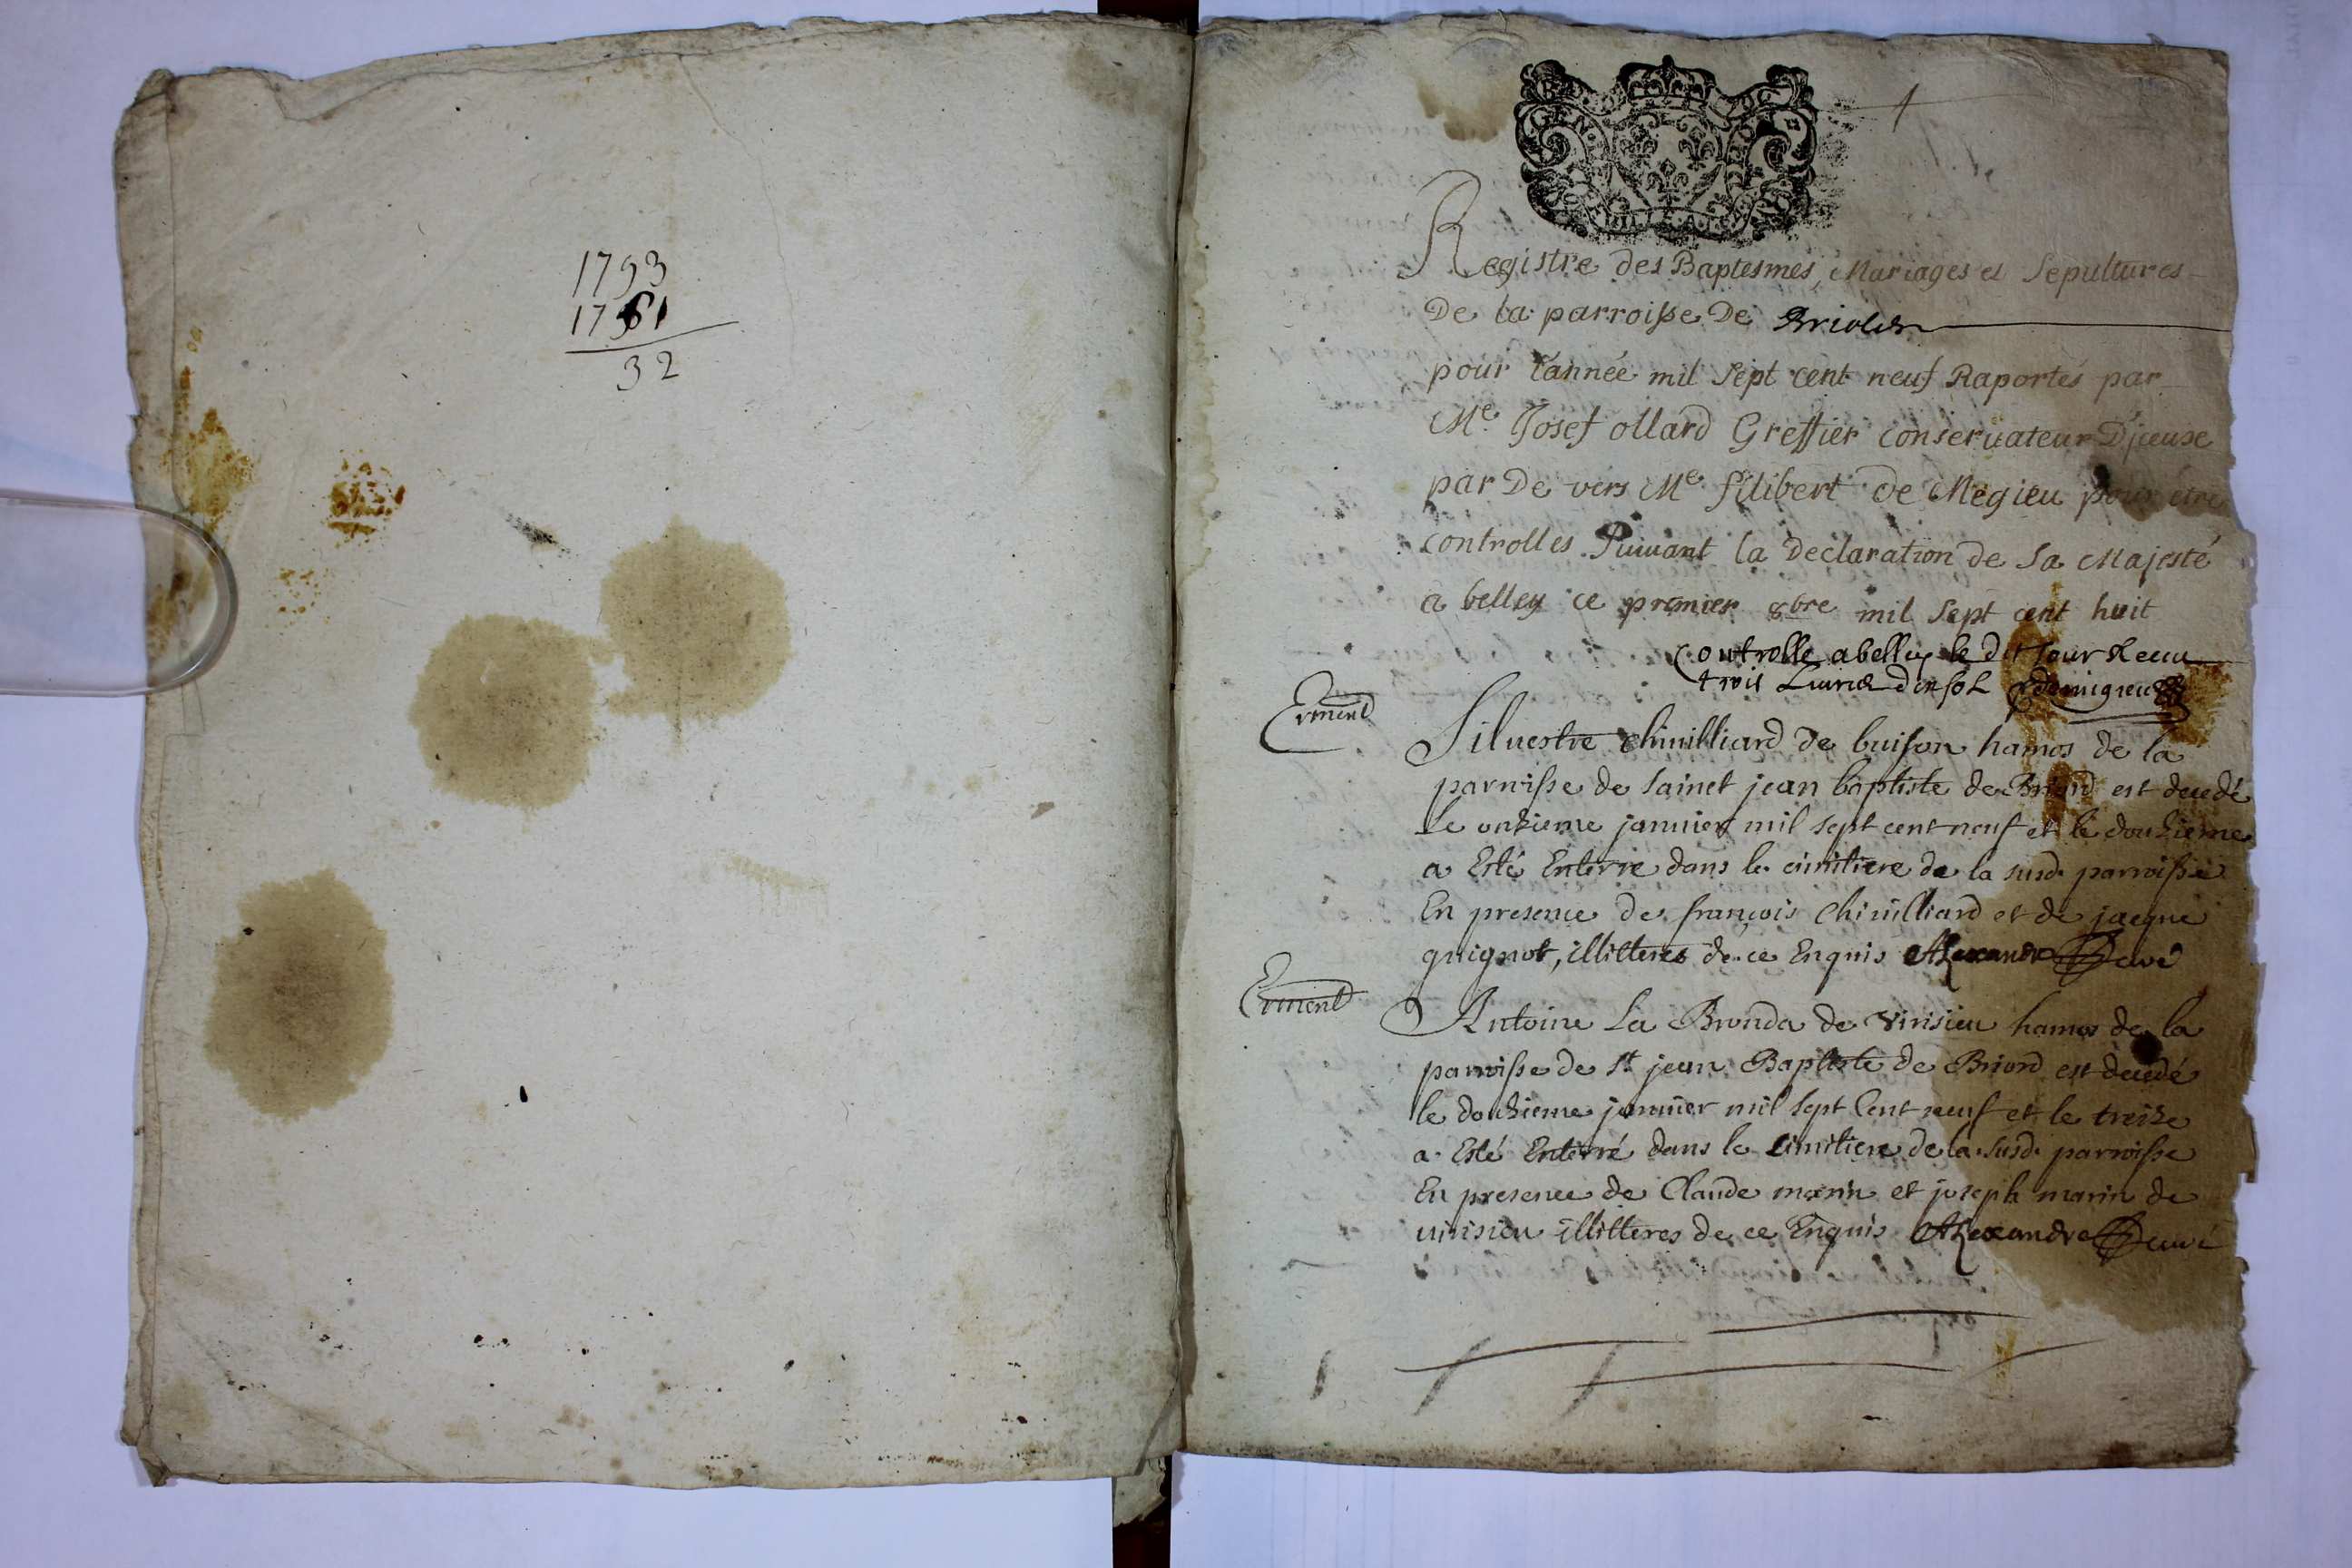 1793
1761
32
1
GEN
Registre des Baptesmes, Mariages et Sepultures
De la parroisse De
pour l'année mil Sept cent neuf Raportés par
Me. Josef ollard Greffier conseruateur
par De vers Me filibert de Megieu pour étre
controlles Suiuant la Declaration de Sa Majesté
a belley ce premier 8bre mil Sept cent huit
Controlle a belley le dt Jour Receu
trois Liures dix sol demigieu
Erment
Siluestre chinilliard de buison hamos de la
parroisse de sainct jean baptiste de Briord est decedé
le onzieme januier mil sept cent neuf et le douzieme
a Esté Enterre dans le cimitiere de la susd. parroisse
En presence de françois Chinilliard et de jacque
guignot, illitteres de ce Enquis Alexandre Curé
Erment
Antoine La Bronda de virisieu hamos de la
parroisse de st jean Baptiste de Briord est decedé
le douzieme januier mil sept Cent neuf et le treize
a Esté Enterré dans le cimitiere de la susd. parroisse
En presence de Claude marin et joseph marin de
uirisieu illitteres de ce Enquis Alexandre Curé